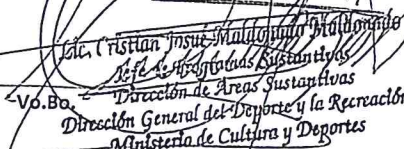 Lic. Cristian Josué Maldonado Maldonado
Jefe de Sustantivas
Vo.Bo. Dirección de Areas Sustantivas
Dirección General del Deporte y la Recreación
Ministerio de Cultura y Deportes